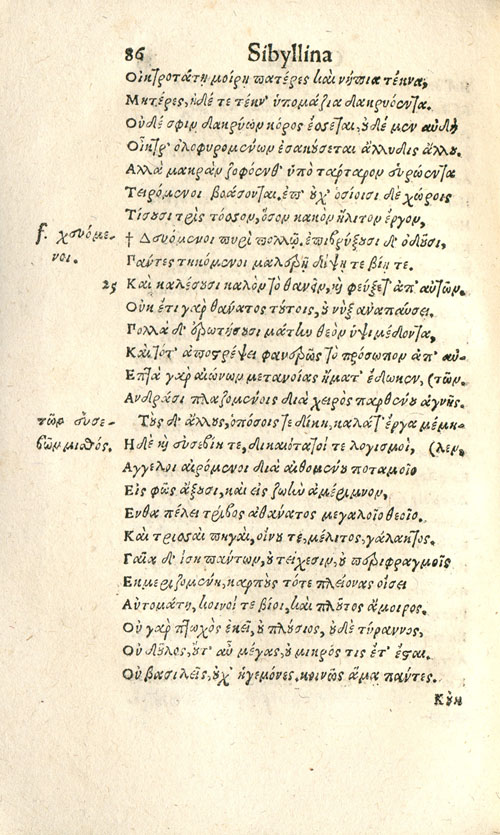 86 Sibyllina
Οἰκτροτάτη μοίρη πατέρες καὶ νήπια τέκνα,
Μητέρες, ἠδέ τε τέκν' ὑπομάζια δακρυόεντα.
Οὐδέ σφιν δακρύων κόρος ἔσσεται, οὐδὲ μὲν αὐδὴ
Οἰκτρ' ὀλοφυρομένων ἐσακούσεται ἄλλυδις ἄλλου.
Ἀλλὰ μακρὰν ζοφόενθ' ὑπὸ τάρταρον
Τειρόμενοι βοάσονται. ἐπ' οὐχ' ὁσίοισι δὲ χώροις
Τίσουσι τρὶς τόσσον, ὅσον κακὸν ἤλιτον ἔργον,
f. χευόμε-
νοι.
† Δευόμενοι πυρὶ πολλῷ. ἐπιβρύξουσι δ' ὀδοῦσι,
Πάντες τηκόμενοι μαλερῇ δίψῃ τε βίῃ τε.
25 Καὶ καλέσουσι καλὸν τὸ θανεῖν, καὶ φεύξετ' ἀπ' αὐτῶν.
Οὐκ ἔτι γὰρ θάνατος τούτοις, οὐ νὺξ ἀναπαύσει.
Πολλὰ δ' ἐρωτήσουσι μάτην θεὸν ὑψιμέδοντα,
Καὶ τότ' ἀποστρέψει φανερῶς τὸ πρόσωπον ἀπ' αὐ-
Ἑπτὰ γὰρ αἰώνων μετανοίας ἤματ' ἔδωκεν, (τῶν.
Ἀνδράσι πλαζομένοις διὰ χειρὸς παρθένου ἁγνῆς.
τῶν εὐσε-
βῶν μισθός.
Τοὺς δ' ἄλλους, ὁπόσοις τε δίκη, καλά τ' ἔργα μέμη-
Ἠδὲ καὶ εὐσεβίη τε, δικαιότατοί τε λογισμοί, (λεν,
Ἄγγελοι αἰρόμενοι διὰ αἰθομένου ποταμοῖο
Εἰς φῶς ἄξουσι, καὶ εἰς ζωὴν ἀμέριμνον,
Ἔνθα πέλει τρίβος ἀθάνατος μεγαλοῖο θεοῖο.
Καὶ τρισσαὶ πηγαὶ, οἴνου τε, μέλιτος, γάλακτος.
Γαῖα δ' ἴση πάντων, οὐ τείχεσιν, οὐ περιφραγμοῖς
Ἐκμεριζομένη, καρποὺς τότε πλείονας οἴσει
Αὐτομάτη, κοινοί τε βίοι, καὶ πλοῦτος ἄμοιρος.
Οὐ γὰρ πτωχὸς ἐκεῖ, οὐ πλούσιος, οὐδὲ τύραννος,
Οὐ δοῦλος, οὔτ' αὖ μέγας, οὐ μικρός τις ἔτ' ἔσται.
Οὐ βασιλεῖς, οὐχ' ἡγεμόνες. κοινῶς ἅμα πάντες.
Κοὐκ